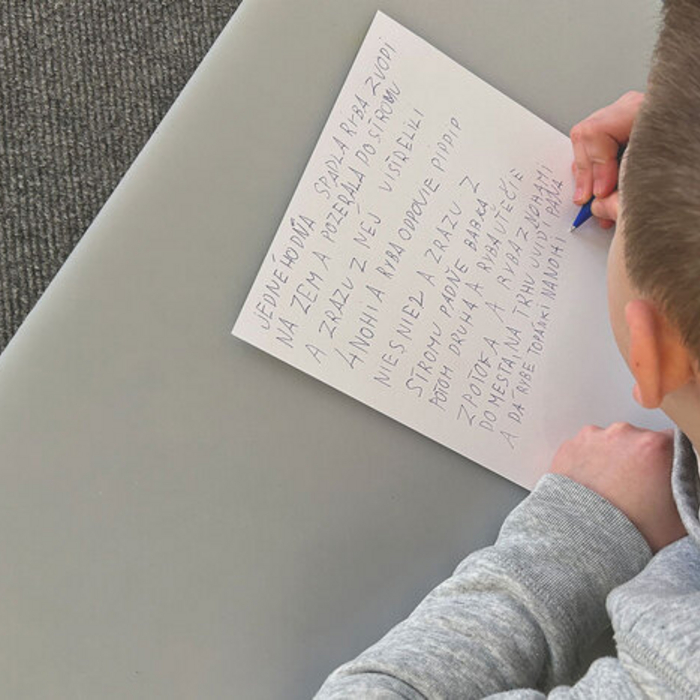 JEDNÉHO DŇA SPADLA RYBA Z VODI
NA ZEM A POZERALA DO STROMU
A ZRAZU Z NEJ VISTRELILI
4 NOHI A RYBA ODPOVIE PIPPIP
NIE SNIEL A ZRAZU Z
STROMU PADŇE BARKA Z
POTOM DRUHA A RYBA UTEČIE
Z POTOKA A RYBA Z NOHAMI
DO MESTA NA TRHU UVIDÍ PAVA
A DÁ RYBE TOPÁNKI NA NOHI